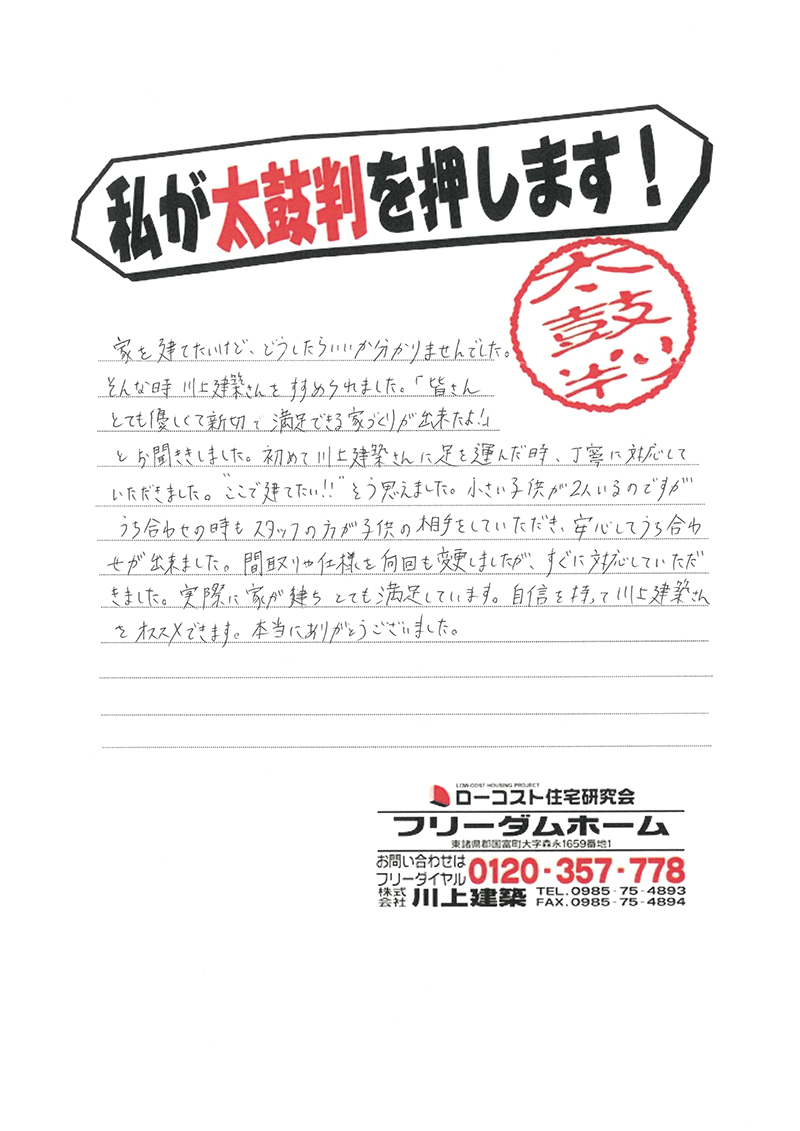 私が太鼓判を押します！
太鼓判
家を建てたいけど、どうしたらいいか分かりませんでした。
そんな時川上建築さんをすすめられました。「皆さん
とても優しくて親切で満足できる家づくりが出来たよ!」
とお聞ききしました。初めて川上建築さんに足を運んだ時、丁寧に対応して
いただきました。"ここで建てたい!!"そう思えました。小さい子供が2人いるのですが
うち合わせの時もスタッフの方が子供の相手をしていただき、安心してうち合わ
せが出来ました。間取りや仕様を何回も変更しましたが、すぐに対応していただ
きました。実際に家が建ちとても満足しています。自信を持って川上建築さん
をオススメできます。本当にありがとうございました。
LOW-COST HOUSING PROJECT
ローコスト住宅研究会
フリーダムホーム
東諸県郡国富町大字森永1659番地1
お問い合わせは
フリーダイヤル 0120-357-778
株式会社 川上建築 TEL.0985-75-4893
FAX.0985-75-4894